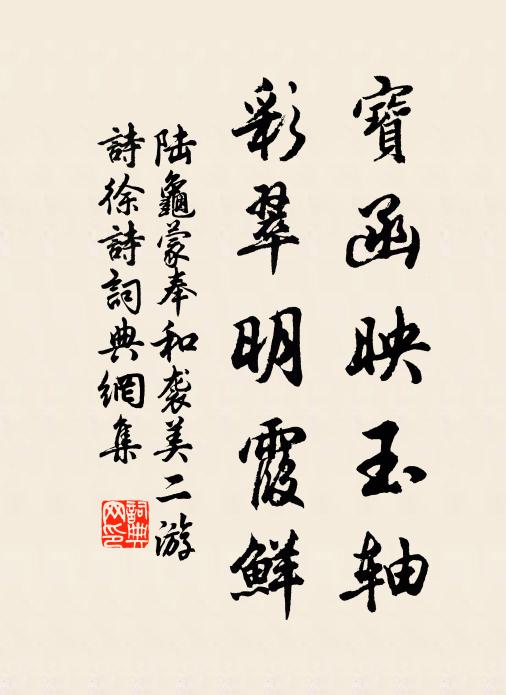 寶函映玉軸
彩翠明霞鮮
陸龜蒙奉和袭美二游
詩徐詩詞典網集
詞典網印